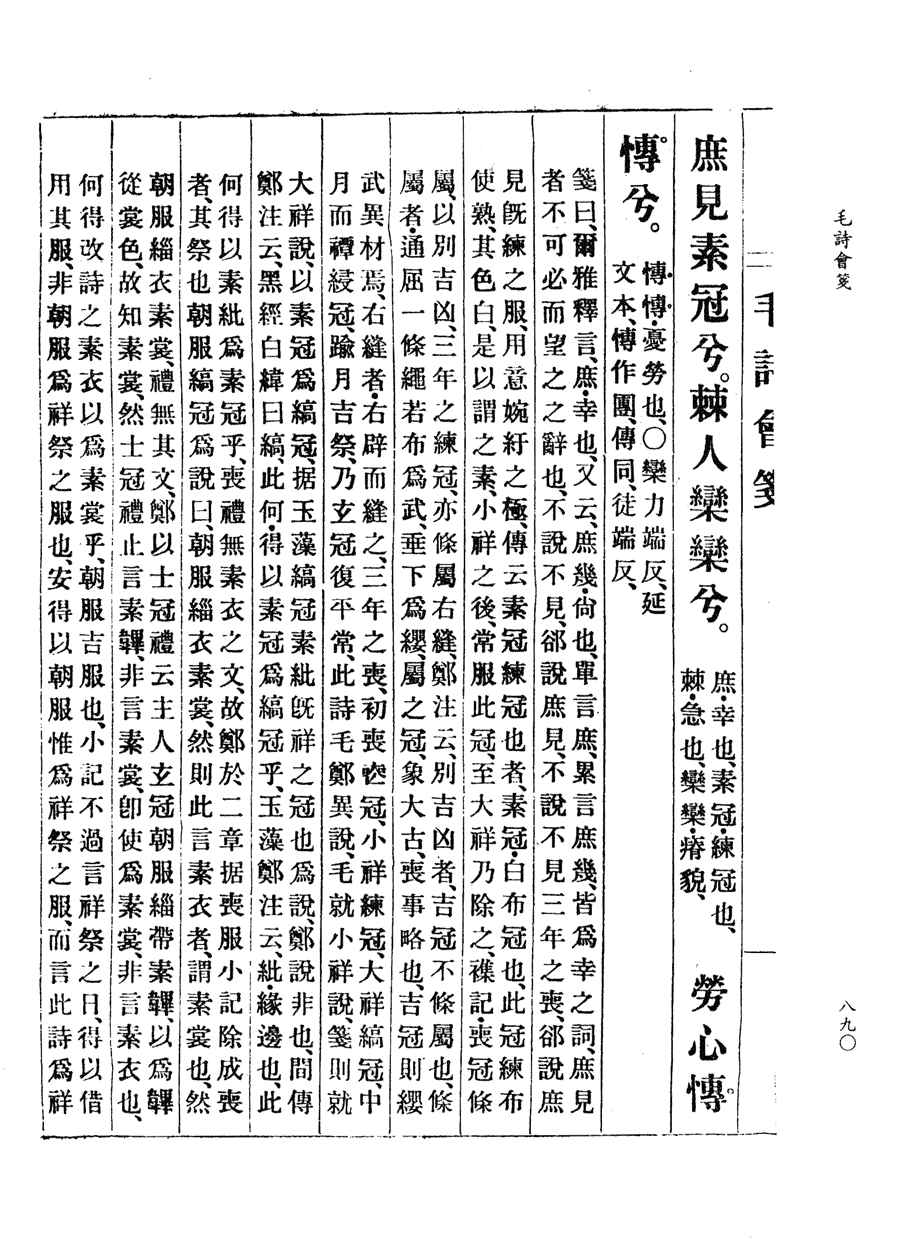 毛詩會箋
八九〇
毛詩會箋
庶見素冠兮。棘人欒欒兮。
庶・幸也、素冠・練冠也、
棘・急也、欒欒・瘠貌、
勞心慱
慱兮。
慱慱・憂勞也、〇欒力端反、延
文本、慱作團、傳同、徒端反、
箋曰、爾雅釋言、庶・幸也、又云、庶幾・尙也、單言庶、累言庶幾、皆爲幸之詞、庶見
者不可必而望之之辭也、不說不見、卻說庶見、不說不見三年之喪、卻說庶
見旣練之服、用意婉紆之極、傳云素冠練冠也者、素冠・白布冠也、此冠練布
使熟、其色白、是以謂之素、小祥之後、常服此冠、至大祥乃除之、襍記・喪冠條
屬、以別吉凶、三年之練冠、亦條屬右縫、鄭注云、別吉凶者、吉冠不條屬也、條
屬者・通屈一條繩若布爲武、垂下爲纓、屬之冠、象大古、喪事略也、吉冠則纓
武異材焉、右縫者・右辟而縫之、三年之喪、初喪冠、小祥練冠、大祥縞冠、中
月而禫綅冠、踰月吉祭、乃玄冠復平常、此詩毛鄭異說、毛就小祥說、箋則就
大祥說、以素冠爲縞冠、据玉藻縞冠素紕旣祥之冠也爲說、鄭說非也、間傳
鄭注云、黑經白緯曰縞、此何・得以素冠爲縞冠乎、玉藻鄭注云、紕・緣邊也、此
何得以素紕爲素冠乎、喪禮無素衣之文、故鄭於二章据喪服小記除成喪
者、其祭也朝服縞冠爲說曰、朝服緇衣素裳、然則此言素衣者、謂素裳也、然
朝服緇衣素裳、禮無其文、鄭以士冠禮云主人玄冠朝服緇帶素韠、以爲韠
從裳色、故知素裳、然士冠禮止言素韠、非言素裳、卽使爲素裳、非言素衣也、
何得改詩之素衣以爲素裳乎、朝服吉服也、小記不過言祥祭之日、得以借
用其服、非朝服爲祥祭之服也、安得以朝服惟爲祥祭之服、而言此詩爲祥